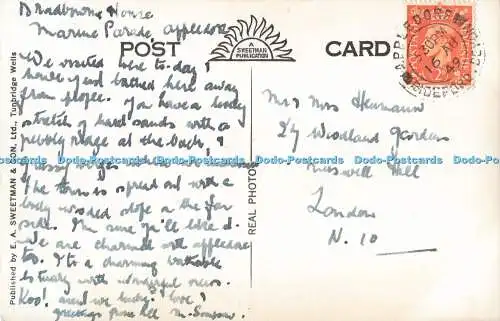 Bradbourne House
Marine Parade, Appledore
POST
CARD
A
SWEETMAN
PUBLICATION
APPLEDORE
BIDEFORD
16 AU
49
Published by E. A. SWEETMAN & SON, Ltd., Tunbridge Wells
REAL PHOTO
We visited here to-day,
house & and bathed here away
from people. You have a lovely
stretch of hard sands with a
pebbly ridge at the back, &
grassy
The town is spread out with a
wooded slope on the far
side. I'm sure you'll like it.
We are charmed with appledore
too. It's a charming
estuary with wonderful views.
love
greetings from all M.
Mr & Mrs Heumann
24 Woodland Gardens
Muswell Hill
London
N. 10
Dodo-Postcards Dodo-Postcards Dodo-Postcards Dodo-Postcards Dodo-Postcards Dodo-Postcards